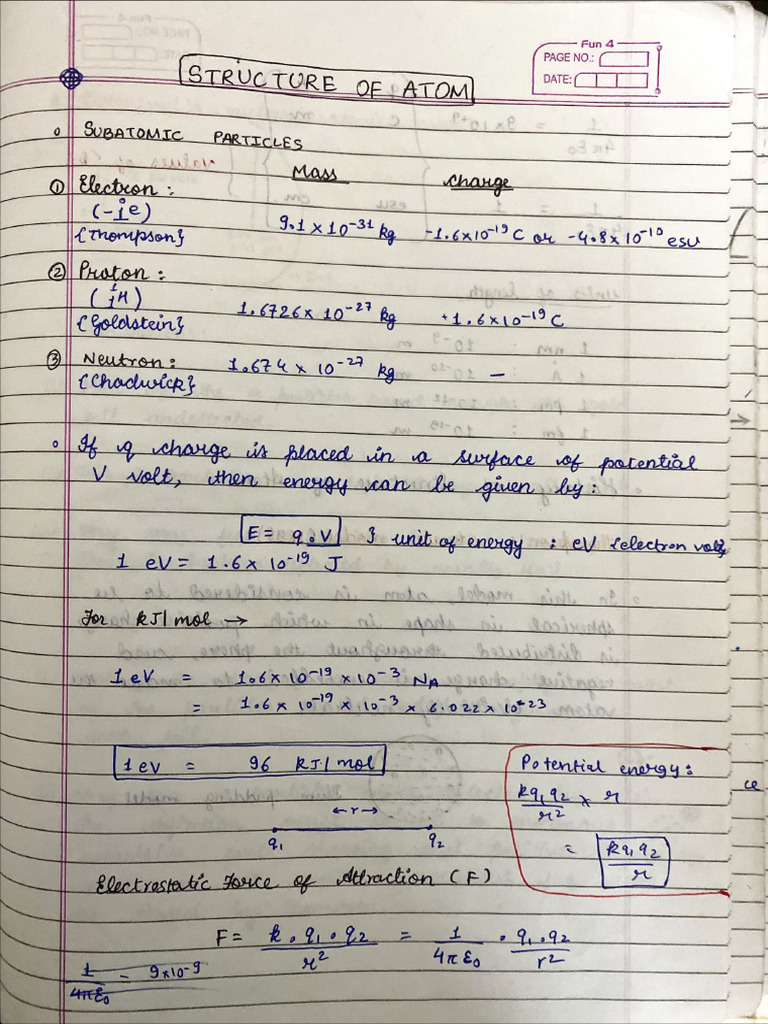 Fun 4
PAGE NO.:
DATE:
STRUCTURE OF ATOM
SUBATOMIC PARTICLES
Mass Charge
① Electron :
(-1°e) 9.1 × 10⁻³¹ kg -1.6×10⁻¹⁹ C or -4.8 × 10⁻¹⁰ esu
{Thompson}
② Proton :
(¹₁H) 1.6726 × 10⁻²⁷ kg +1.6×10⁻¹⁹ C
{Goldstein}
③ Neutron : 1.674 × 10⁻²⁷ kg —
{Chadwick}
If q charge is placed in a surface of potential
V volt, then energy can be given by :
E = q.V } unit of energy : eV {electron volt}
1 eV = 1.6 × 10⁻¹⁹ J
For kJ/mol →
1 eV = 1.6 × 10⁻¹⁹ × 10⁻³ NA
= 1.6 × 10⁻¹⁹ × 10⁻³ × 6.022 × 10²³
1 eV = 96 kJ/mol
Potential energy :
kq₁q₂/r² × r
= kq₁q₂/r
←r→
q₁ q₂
Electrostatic Force of Attraction (F)
F = k.q₁.q₂/r² = 1/4πε₀ . q₁.q₂/r²
1/4πε₀ = 9×10⁻⁹